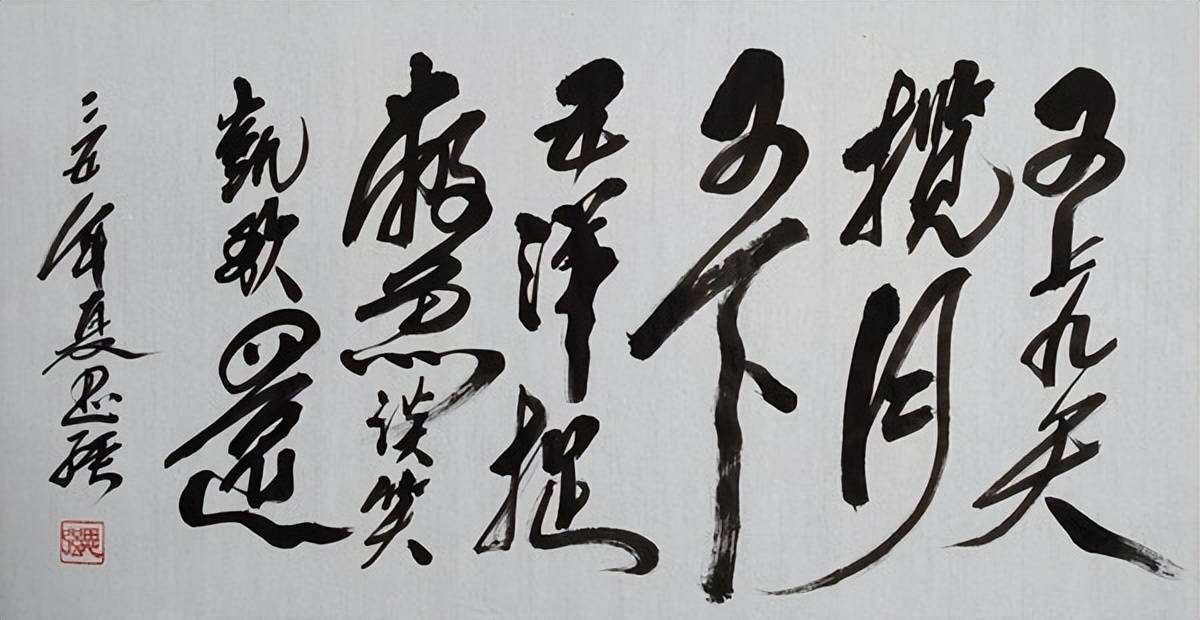 可上九天
揽月
可下
五洋捉
鱉谈笑
凱歌還
二五年夏思强